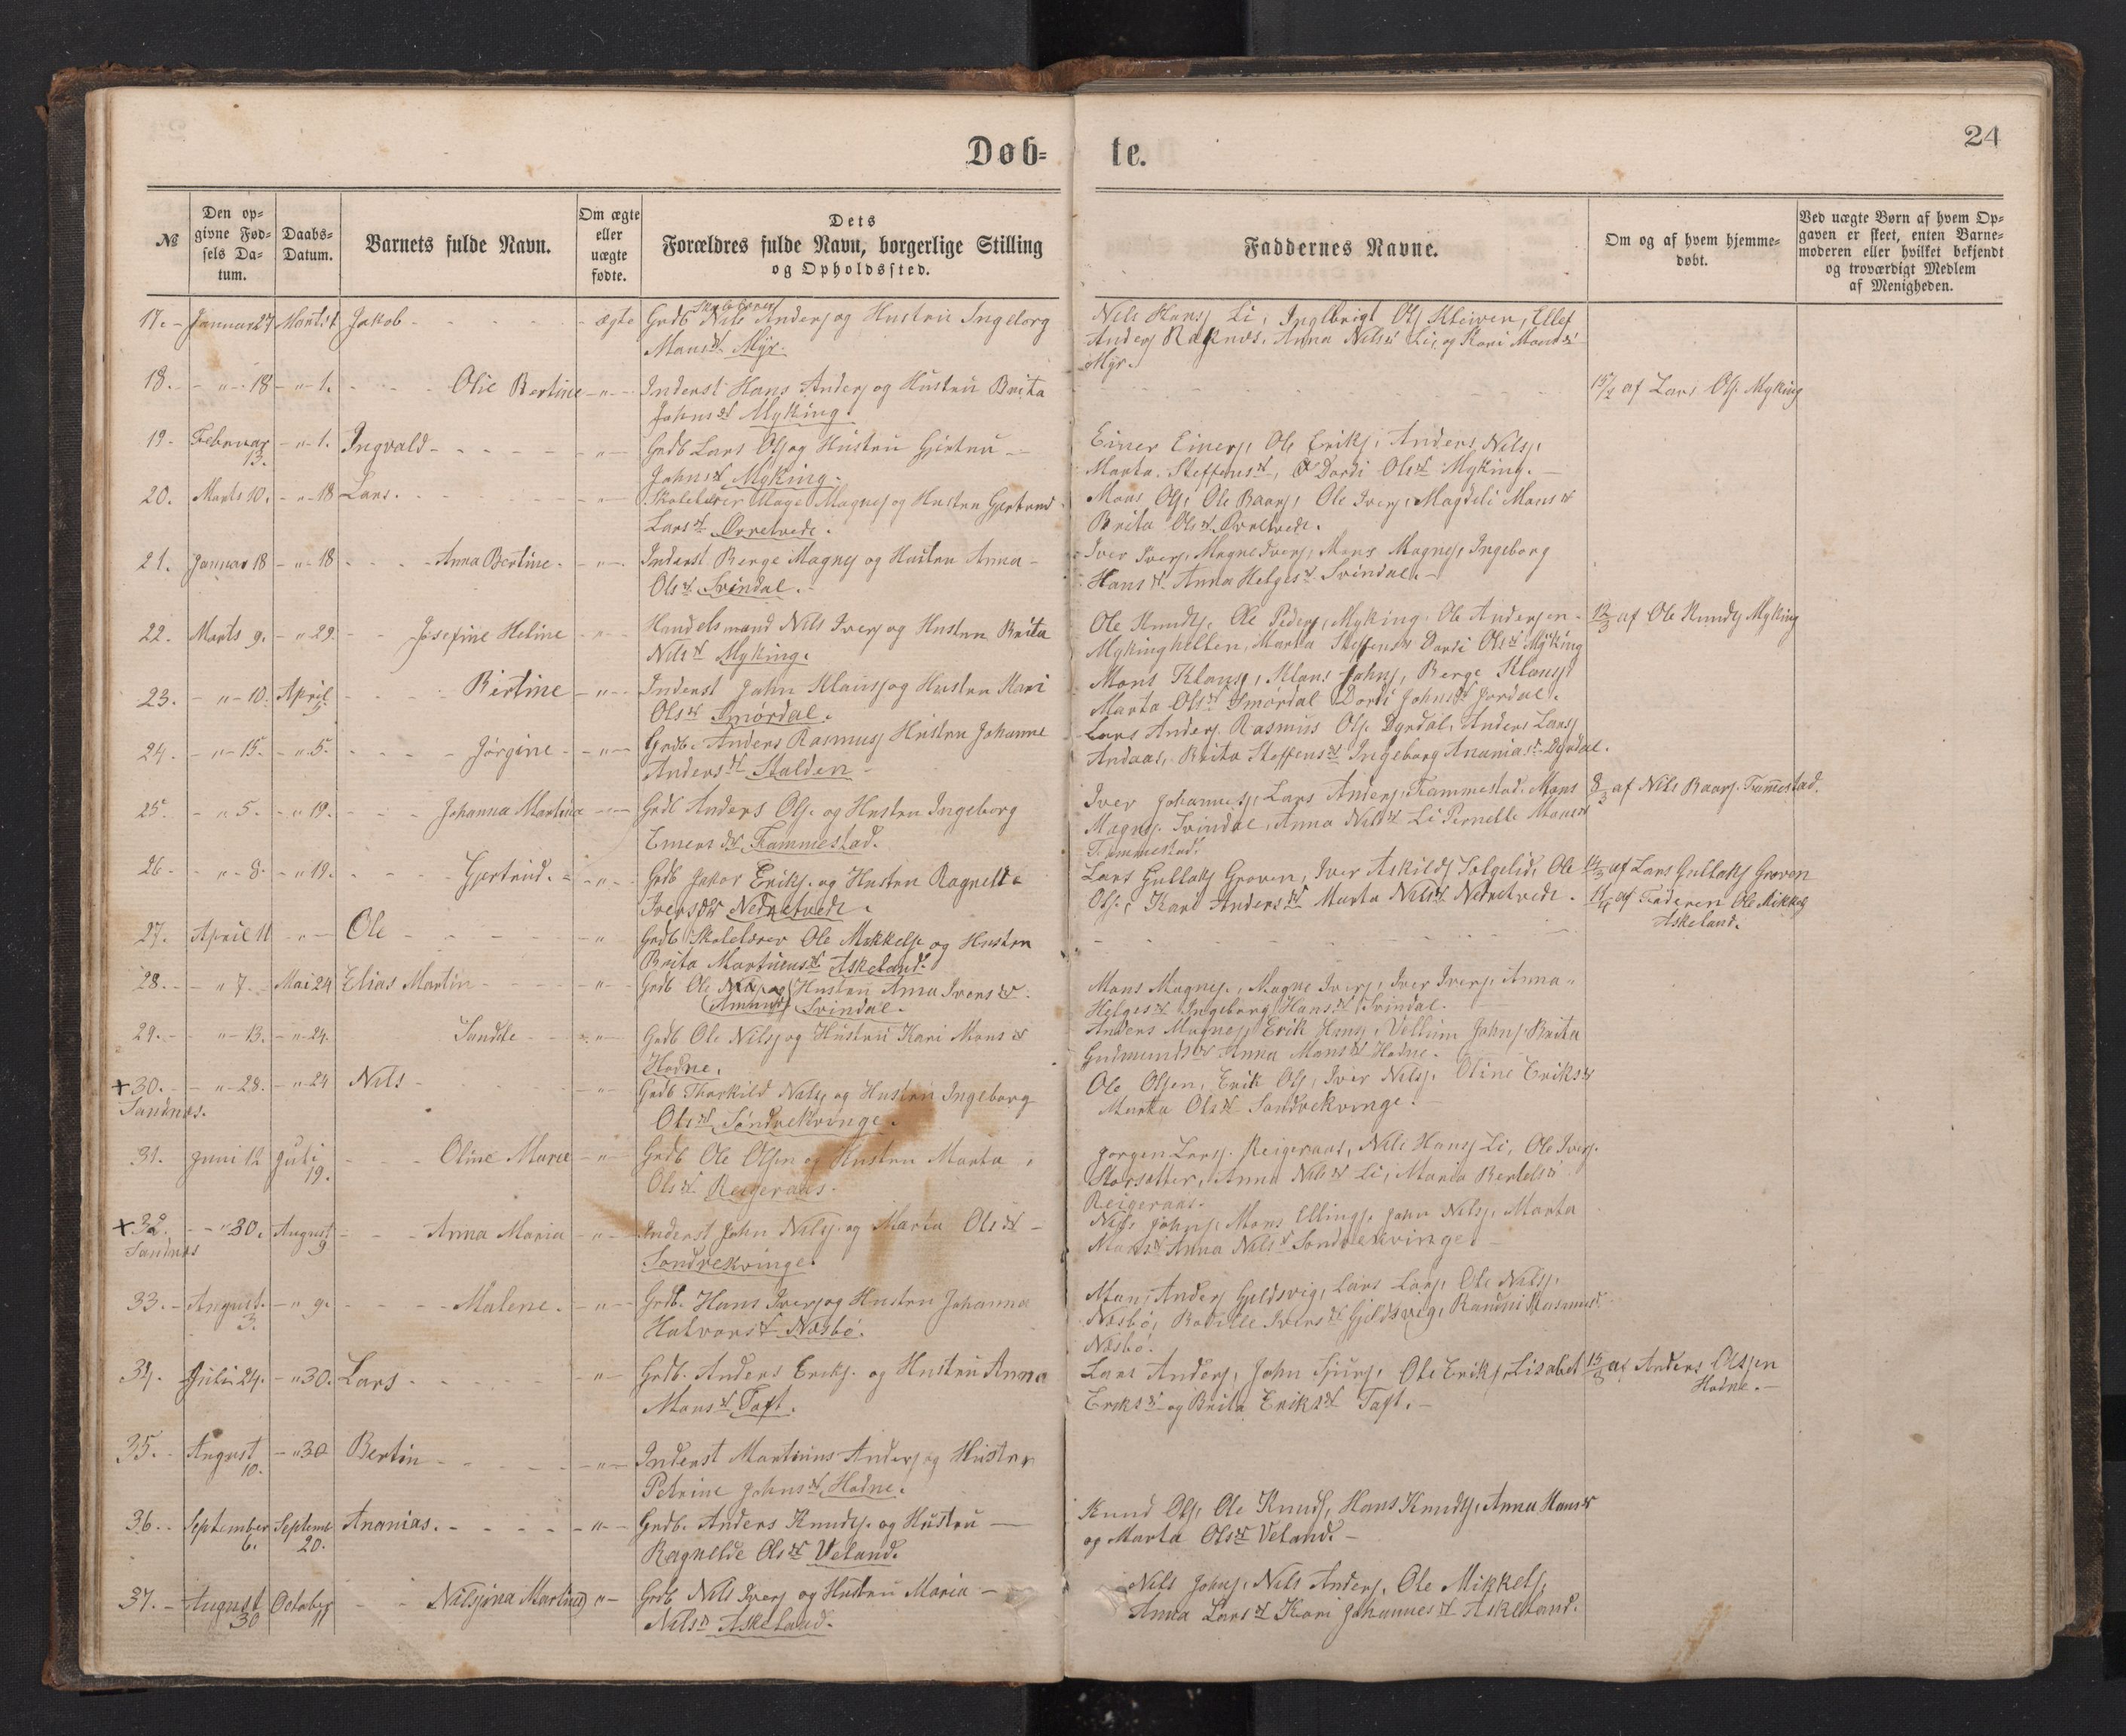 24
Døb-
te.
№
Den op-
givne Fød-
sels Da-
tum.
Daabs-
Datum.
Barnets fulde Navn.
Om ægte
eller
uægte
fødte.
Dets
Forældres fulde Navn, borgerlige Stilling
og Opholdssted.
Faddernes Navne.
Om og af hvem hjemme-
døbt.
Ved uægte Børn af hvem Op-
gaven er skeet, enten Barne-
moderen eller hvilket bekjendt
og troværdigt Medlem
af Menigheden.
17. Januar 27 Marts 1 Jakob ægte Grdb Nils Andersj og Hustru Ingeborg
Monsdt Myr.
Nils Hansj Li, Olsj Kleiven, Ellef
Andersj Anna Nilsdt Li, og Kari Monsdt
Myr.
18. " 18 " 1. Olie Bertine " Inderst Hans Andersj og Hustru Brita
Johnsdt Myking.
15/2 af Lars Olsj. Myking
19. Februar
13. " 1. Ingvald " Grdb Lars Olsj og Hustru Gjertru
Johnsdt Myking.
Einer Einersj, Ole Eriksj, Anders Nilsj,
Marta Steffensdt, Dordi Olsdt Myking.
20. Marts 10. " 18 Lars. " Skolelærer Magnesj og Hustru Gjertrud
Larsdt Øvretvedt.
Mons Olsj, Ole Baarsj, Ole Iversj, Magdeli Monsdt
Brita Olsdt Øvretvedt.
21. Januar 18 " 18 Anna Bertine. " Inderst Berge Magnesj og Hustru Anna
Olsdt Svindal.
Iver Iversj, Magne Iversj, Mons Magnesj, Ingeborg
Hansdt Anna Helgesdt Svindal.
22. Marts 9. " 29. Josefine Heline " Handelsmand Nils Iversj og Hustru Brita
Nilsdt Myking.
Ole Knudsj. Ole Pedersj, Myking, Ole Andersen
Mykinghelten, Marta Steffensdt Dordi Olsdt Myking
12/3 af Ole Knudsj Myking
23. " 10. April
5. Bertine " Inderst John Klausj og Hustru Kari
Olsdt Smørdal.
Mons Klausj, Klaus Johnsj, Berge Klausj
Marta Olsdt Smørdal Dordi Johnsdt Jordal.
24. " 15. " 5. Jørgine " Grdb. Anders Rasmusj Hustru Johanne
Andersdt Stalden
Lars Andersj Rasmus Olsj. Dyrdal, Anders Larsj
Andaas, Brita Steffensdt Ingeborg Ananiasdt Dyrdal.
25. " 5. " 19. Johanna Martina " Grdb Anders Olsj. og Hustru Ingeborg
Einersdt Frammestad.
Iver Johannesj, Lars Andersj, Frammestad. Mons
Magnesj. Svindal, Anna Nilsdt Li Pernelle Monsdt
Frammestad.
8/3 af Nils Baarsj. Frammestad.
26. " 8. " 19. Gjertrud. " Grdb Jakob Eriksj. og Hustru Ragnilde
Iversdt Nedretvedt.
Lars Gullaksj Groven, Iver Askildsj Solgelid, Ole
Olsj., Kari Andersdt Marta Nilsdt Nedretvedt.
12/3 af Lars Gullaksj Groven
27. April 11 " Ole " Grdb Skolelærer Ole Mikkelsj og Hustru
Brita Martinusdt Askeland.
11/4 af Faderen Ole Mikkelsj
Askeland.
28. " 7 Mai 24 Elias Martin " Grdb Ole og Hustru Anna Iversdt
Svindal.
Mons Magnesj., Magne Iversj, Iver Iversj. Anna
Helgesdt Ingeborg Hansdt Svindal.
29. " 13. " 24. Sandle " Grdb Ole Nilsj og Hustru Kari Monsdt
Hodne.
Anders Magnesj Erik Hansj Johnsj Brita
Gudmundsdt Anna Monsdt Hodne.
+30.
Sandnæs. " 28. " 24 Nils " Grdb Thorkild Nilsj. og Hustru Ingeborg
Olsdt Søndrekvinge.
Ole Olsen, Erik Olsj, Iver Nilsj. Oline Eriksdt
Marta Olsdt Søndrekvinge.
31. Juni 12 Juli
19. Oline Marie " Grdb Ole Olsen og Hustru Marta
Olsdt Reigeraas.
Jørgen Larsj. Reigeraas, Nils Hansj Li, Ole Iversj.
Storsætter, Anna Nilsdt Li, Maria Bertelsdt
Reigeraas.
+32.
Sandnæs " 30. August
9 Anna Maria " Inderst John Nilsj. og Marta Olsdt
Søndrekvinge.
Nils Johnsj. Mons Ellingsj. John Nilsj. Marta
Monsdt Anna Nilsdt Søndrekvinge.
33. August.
3. " 9. Malene. " Grdb. Hans Iversj og Hustru Johanna
Halvorsdt Næsbø.
Mons Andersj Gjeldsvig, Lars Larsj. Ole Nilsj.
Næsbø, Iversdt Gjeldsvig, Randni Rasmusdt
Næsbø.
34. Juli 24. " 30. Lars " Grdb. Anders Eriksj. og Hustru Anna
Monsdt Toft.
Lars Andersj, John Ole Eriksj, Lisabet
Eriksdt og Brita Eriksdt Toft.
15/8 af Anders Olsjen
Hodne.
35. August
10. " 30 Bertin " Inderst Martinus Andersj og Hustru
Petrine Johnsdt Hodne.
36. September
6. Septemb
20. Ananias. " Grdb. Anders Knudsj. og Hustru
Ragnelde Olsdt Veland.
Knud Olsj, Ole Knudsj, Hans Knudsj, Anna Hansdt
og Marta Olsdt Veland.
37. August
30 October
11 Nilsjina Martina " Grdb Nils Iversj og Hustru Maria
Nilsdt Askeland.
Nils Johnsj, Nils Andersj, Ole Mikkelsj,
Anna Larsdt Kari Johannesdt Askeland.